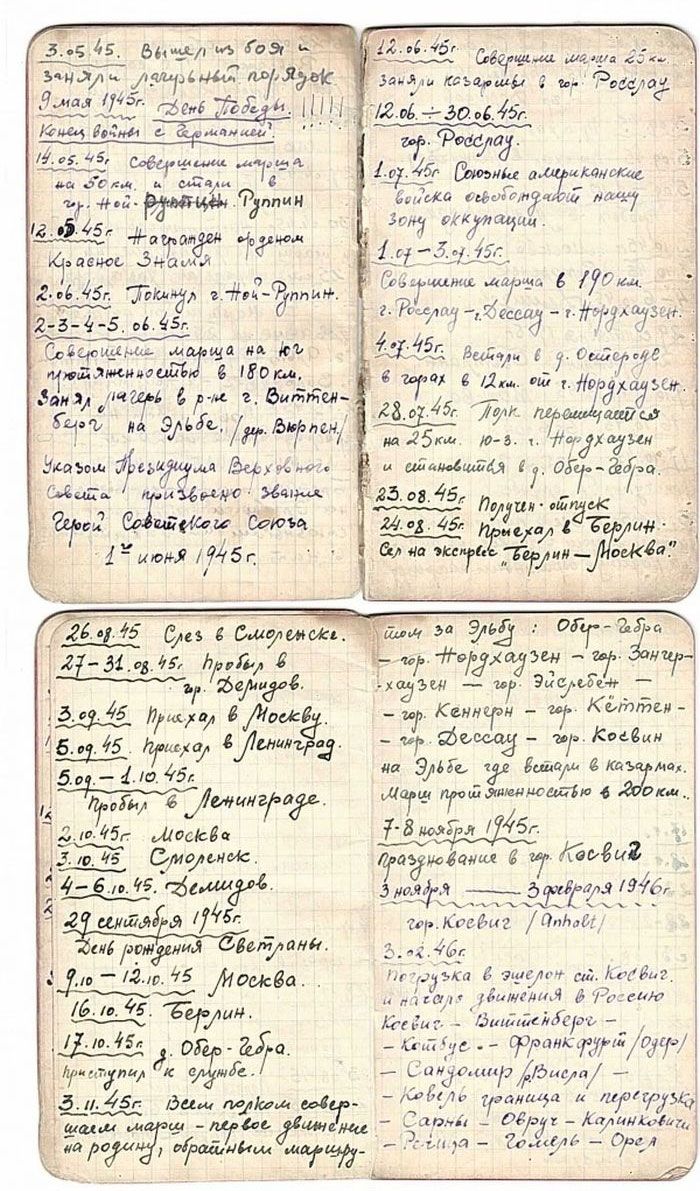 3.05.45. Вышел из боя и
заняли лагерный порядок
9 мая 1945г. День Победы. !!!!!
Конец войны с Германией.
14.05.45г. Совершение марша
на 50 км. и стали в
гор. Ной- Руппин
12.05.45г. Награжден орденом
Красное Знамя
2.06.45г. Покинул г. Ной-Руппин.
2-3-4-5.06.45г.
Совершение марша на юг
протяженностью в 180 км.
Занял лагерь в р-не г. Виттен-
берг на Эльбе. /дер. Вюрпен/
Указом Президиума Верховного
Совета присвоено звание
Герой Советского Союза
1го июня 1945г.
12.06.45г. Совершение марша 25 км.
заняли казармы в гор. Росслау
12.06. ÷ 30.06.45г.
гор. Росслау.
1.07.45г. Союзные американские
войска освобождают нашу
зону оккупации.
1.07 – 3.07.45г.
Совершение марша в 190 км.
г. Росслау – г. Дессау – г. Нордхаузен.
4.07.45г. Встали в д. Остероде
в горах в 12 км. от г. Нордхаузен.
28.07.45г. Полк перемещается
на 25 км. ю-з. г. Нордхаузен
и становиться в д. Обер-Гебра.
23.08.45г. Получен отпуск
24.08.45г. Приехал в Берлин.
Сел на экспресс „Берлин – Москва".
26.08.45 Слез в Смоленске.
27 – 31.08.45г. пробыл в
гор. Демидов.
3.09.45 Приехал в Москву.
5.09.45 Приехал в Ленинград.
5.09. – 1.10.45г.
пробыл в Ленинграде.
2.10.45г. Москва
3.10.45 Смоленск.
4 – 6.10.45. Демидов.
29 сентября 1945г.
День рождения Светланы.
9.10 – 12.10.45 Москва.
16.10.45. Берлин.
17.10.45г. д. Обер-Гебра.
приступил к службе.
3.11.45г. Всем полком совер-
шаем марш – первое движение
на родину, обратным маршру-
том за Эльбу : Обер-Гебра
– гор. Нордхаузен – гор. Зангер-
-хаузен – гор. Эйслебен –
– гор. Кеннерн – гор. Кёттен -
– гор. Дессау – гор. Косвин
на Эльбе где встали в казармах.
Марш протяженностью в 200 км..
7-8 ноября 1945г.
празднование в гор. Косвиг
3 ноября — 3 февраля 1946г.
гор. Косвиг /Anholt/
3.02.46г.
Погрузка в эшелон ст. Косвиг.
и начало движения в Россию
Косвиг – Виттенберг –
– Котбус. – Франкфурт /Одер/
– Сандомир /р. Висла/ –
– Ковель граница и перегрузка
– Сарны – Овруч – Калинковичи
– Речица – Гомель – Орел